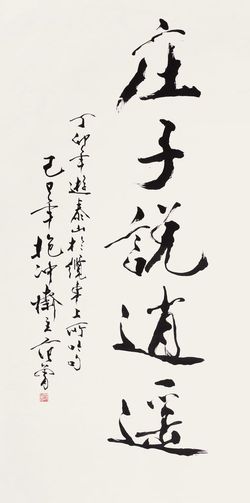 庄子説逍遥
丁卯年遊泰山於纜車上所吟句
己巳年抱冲齋主范曾